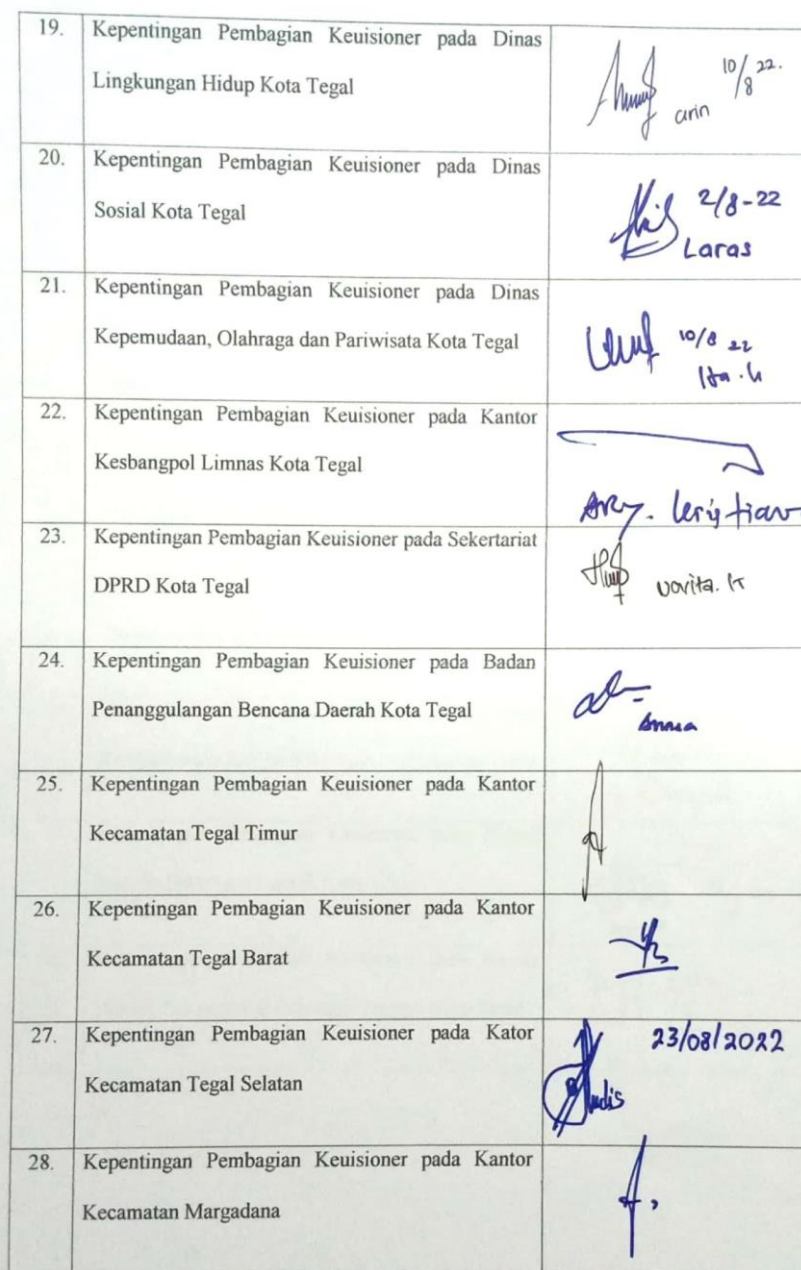 19. Kepentingan Pembagian Keuisioner pada Dinas
Lingkungan Hidup Kota Tegal
10/8 22.
arin
20. Kepentingan Pembagian Keuisioner pada Dinas
Sosial Kota Tegal
2/8-22
Laras
21. Kepentingan Pembagian Keuisioner pada Dinas
Kepemudaan, Olahraga dan Pariwisata Kota Tegal
10/8 22
22. Kepentingan Pembagian Keuisioner pada Kantor
Kesbangpol Limnas Kota Tegal
23. Kepentingan Pembagian Keuisioner pada Sekertariat
DPRD Kota Tegal
Novita. K
24. Kepentingan Pembagian Keuisioner pada Badan
Penanggulangan Bencana Daerah Kota Tegal
25. Kepentingan Pembagian Keuisioner pada Kantor
Kecamatan Tegal Timur
26. Kepentingan Pembagian Keuisioner pada Kantor
Kecamatan Tegal Barat
27. Kepentingan Pembagian Keuisioner pada Kator
Kecamatan Tegal Selatan
23/08/2022
28. Kepentingan Pembagian Keuisioner pada Kantor
Kecamatan Margadana